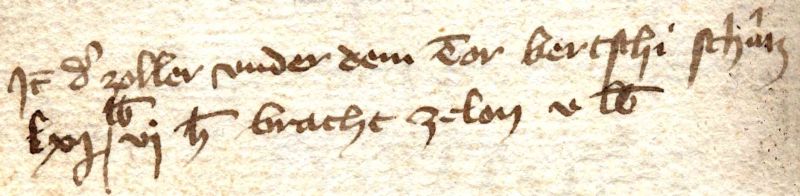 It d̉ zoller vnder dem Tor bertschi schůtz
lxj lb vj h bracht ze lon v lb